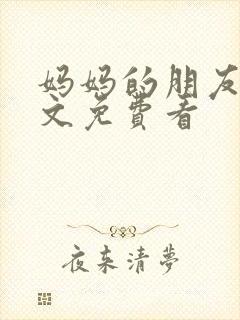 妈妈的朋友
文免費看
夜来清夢